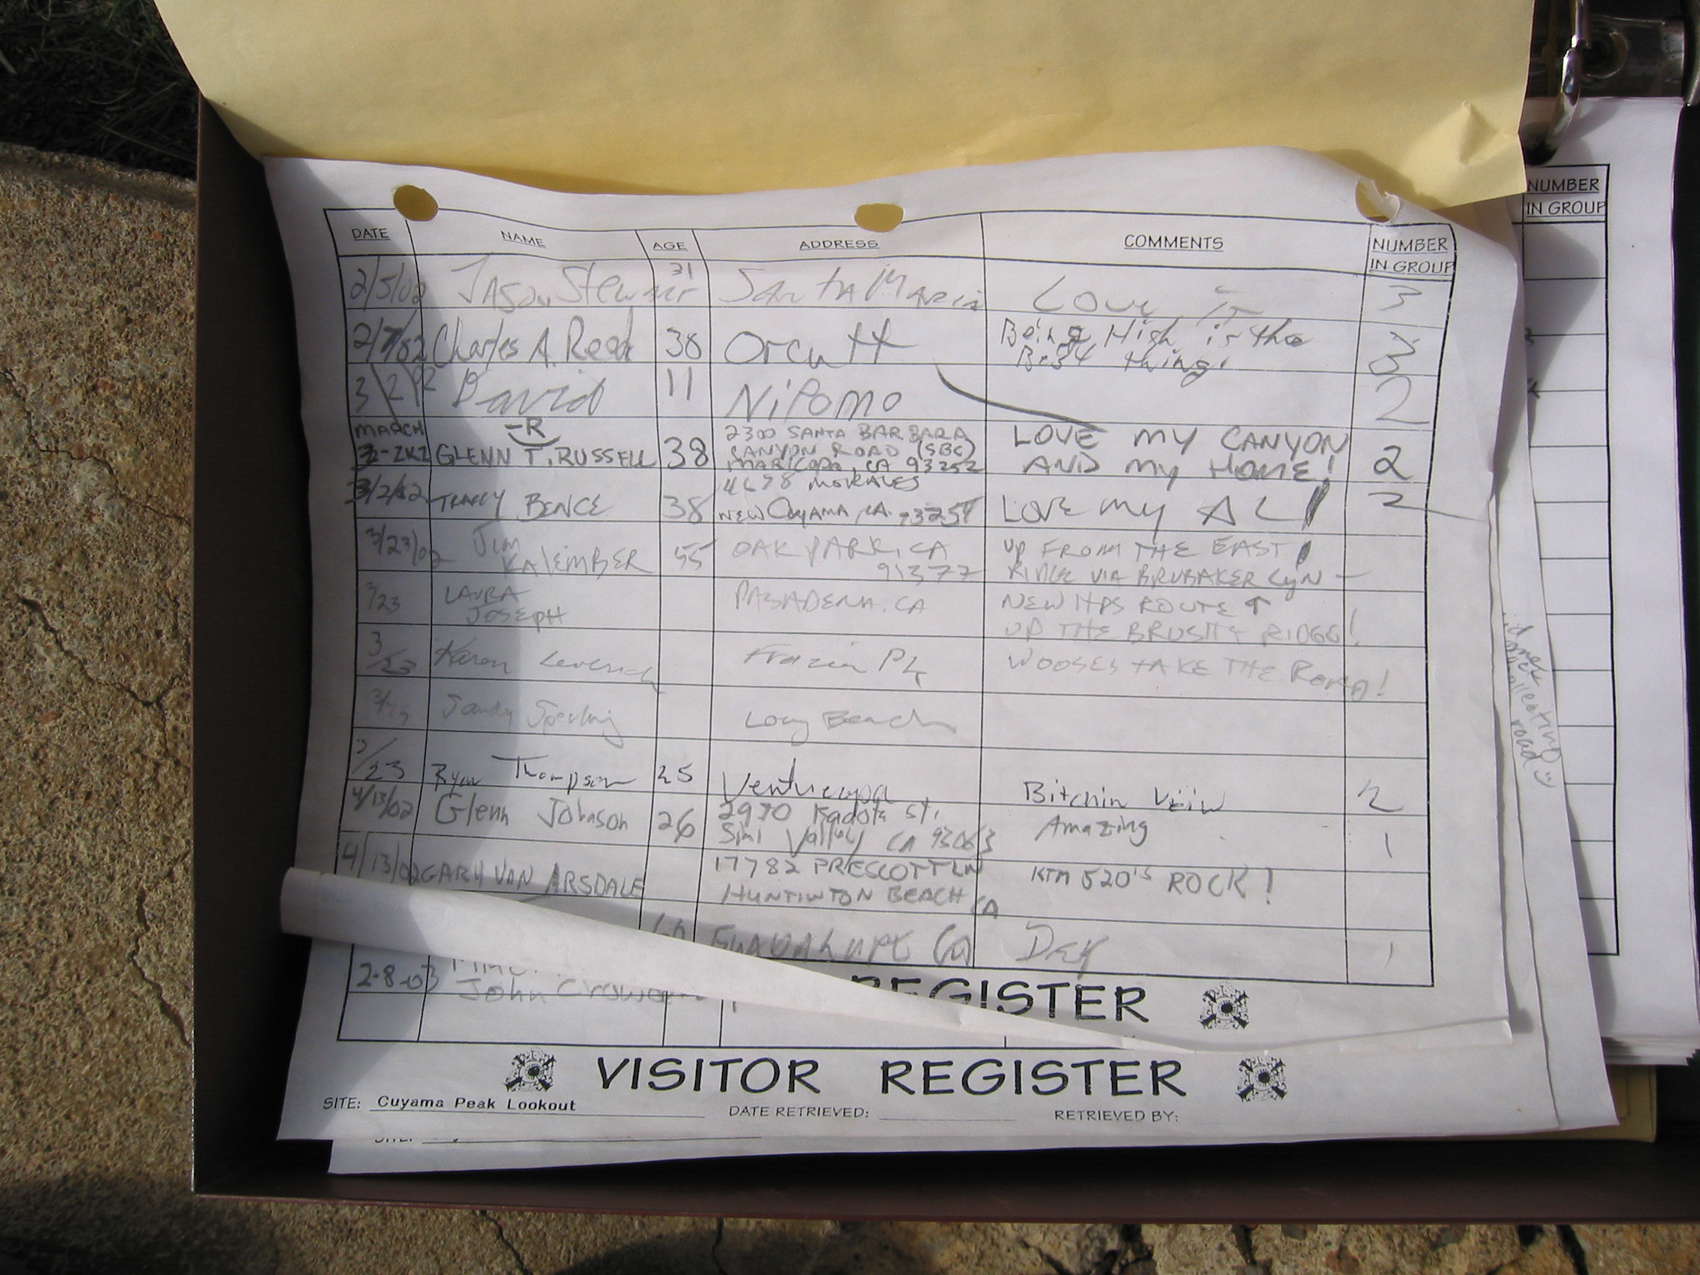 DATE NAME AGE ADDRESS COMMENTS NUMBER IN GROUP
2/5/02 Jason Stewart 31 Santa Maria Love it 3
2/7/02 Charles A. Reed 38 Orcutt Being High is the
Best thing. 3
3 2 02 David 11 Nipomo 2
MARCH -R 2300 SANTA BARBARA LOVE MY CANYON
2-2K2 GLENN T. RUSSELL 38 CANYON ROAD (SBC) AND MY HOME! 2
MARICOPA, CA 93252
3/2/02 TRACY BENCE 38 4678 MORALES LOVE MY AL! 2
NEW CUYAMA, CA. 93254
3/23/02 JIM 55 OAK PARK, CA UP FROM THE EAST
KALEMBER 91377 RIDGE VIA BRUBAKER CYN —
3/23 LAURA PASADENA, CA NEW HPS ROUTE ↑
JOSEPH UP THE BRUSHY RIDGE!
3/23 Karen Leverich Frazier Pk WOOSES TAKE THE ROAD!
Sandy Sperling Long Beach
3/23 Ryan Thompson 25 Ventucopa Bitchin View 2
4/13/02 Glenn Johnson 26 2970 Kadota St. Amazing 1
Simi Valley CA 93063
4/13/02 GARY VAN ARSDALE 17782 PRESCOTT LN KTM 520'S ROCK! 1
HUNTINTON BEACH CA
GUADALUPE Ca 1
2-8-03 John
REGISTER
VISITOR REGISTER
SITE: Cuyama Peak Lookout DATE RETRIEVED: RETRIEVED BY:
NUMBER
IN GROUP
road